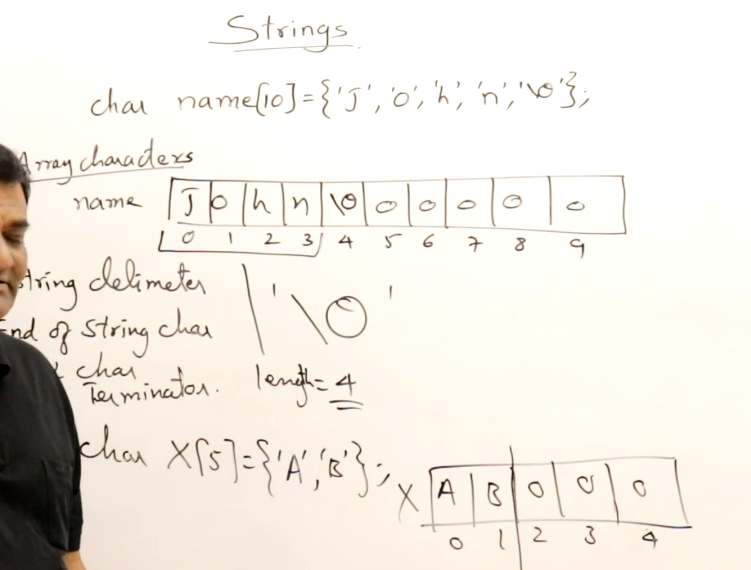 Strings
char name[10]={'J','o','h','n','\0'};
Array characters
name J o h n \0 0 0 0 0 0
0 1 2 3 4 5 6 7 8 9
String delimeter '\0'
End of string char
char
Terminator. length=4
char X[5]={'A','B'};
X A B 0 0 0
0 1 2 3 4